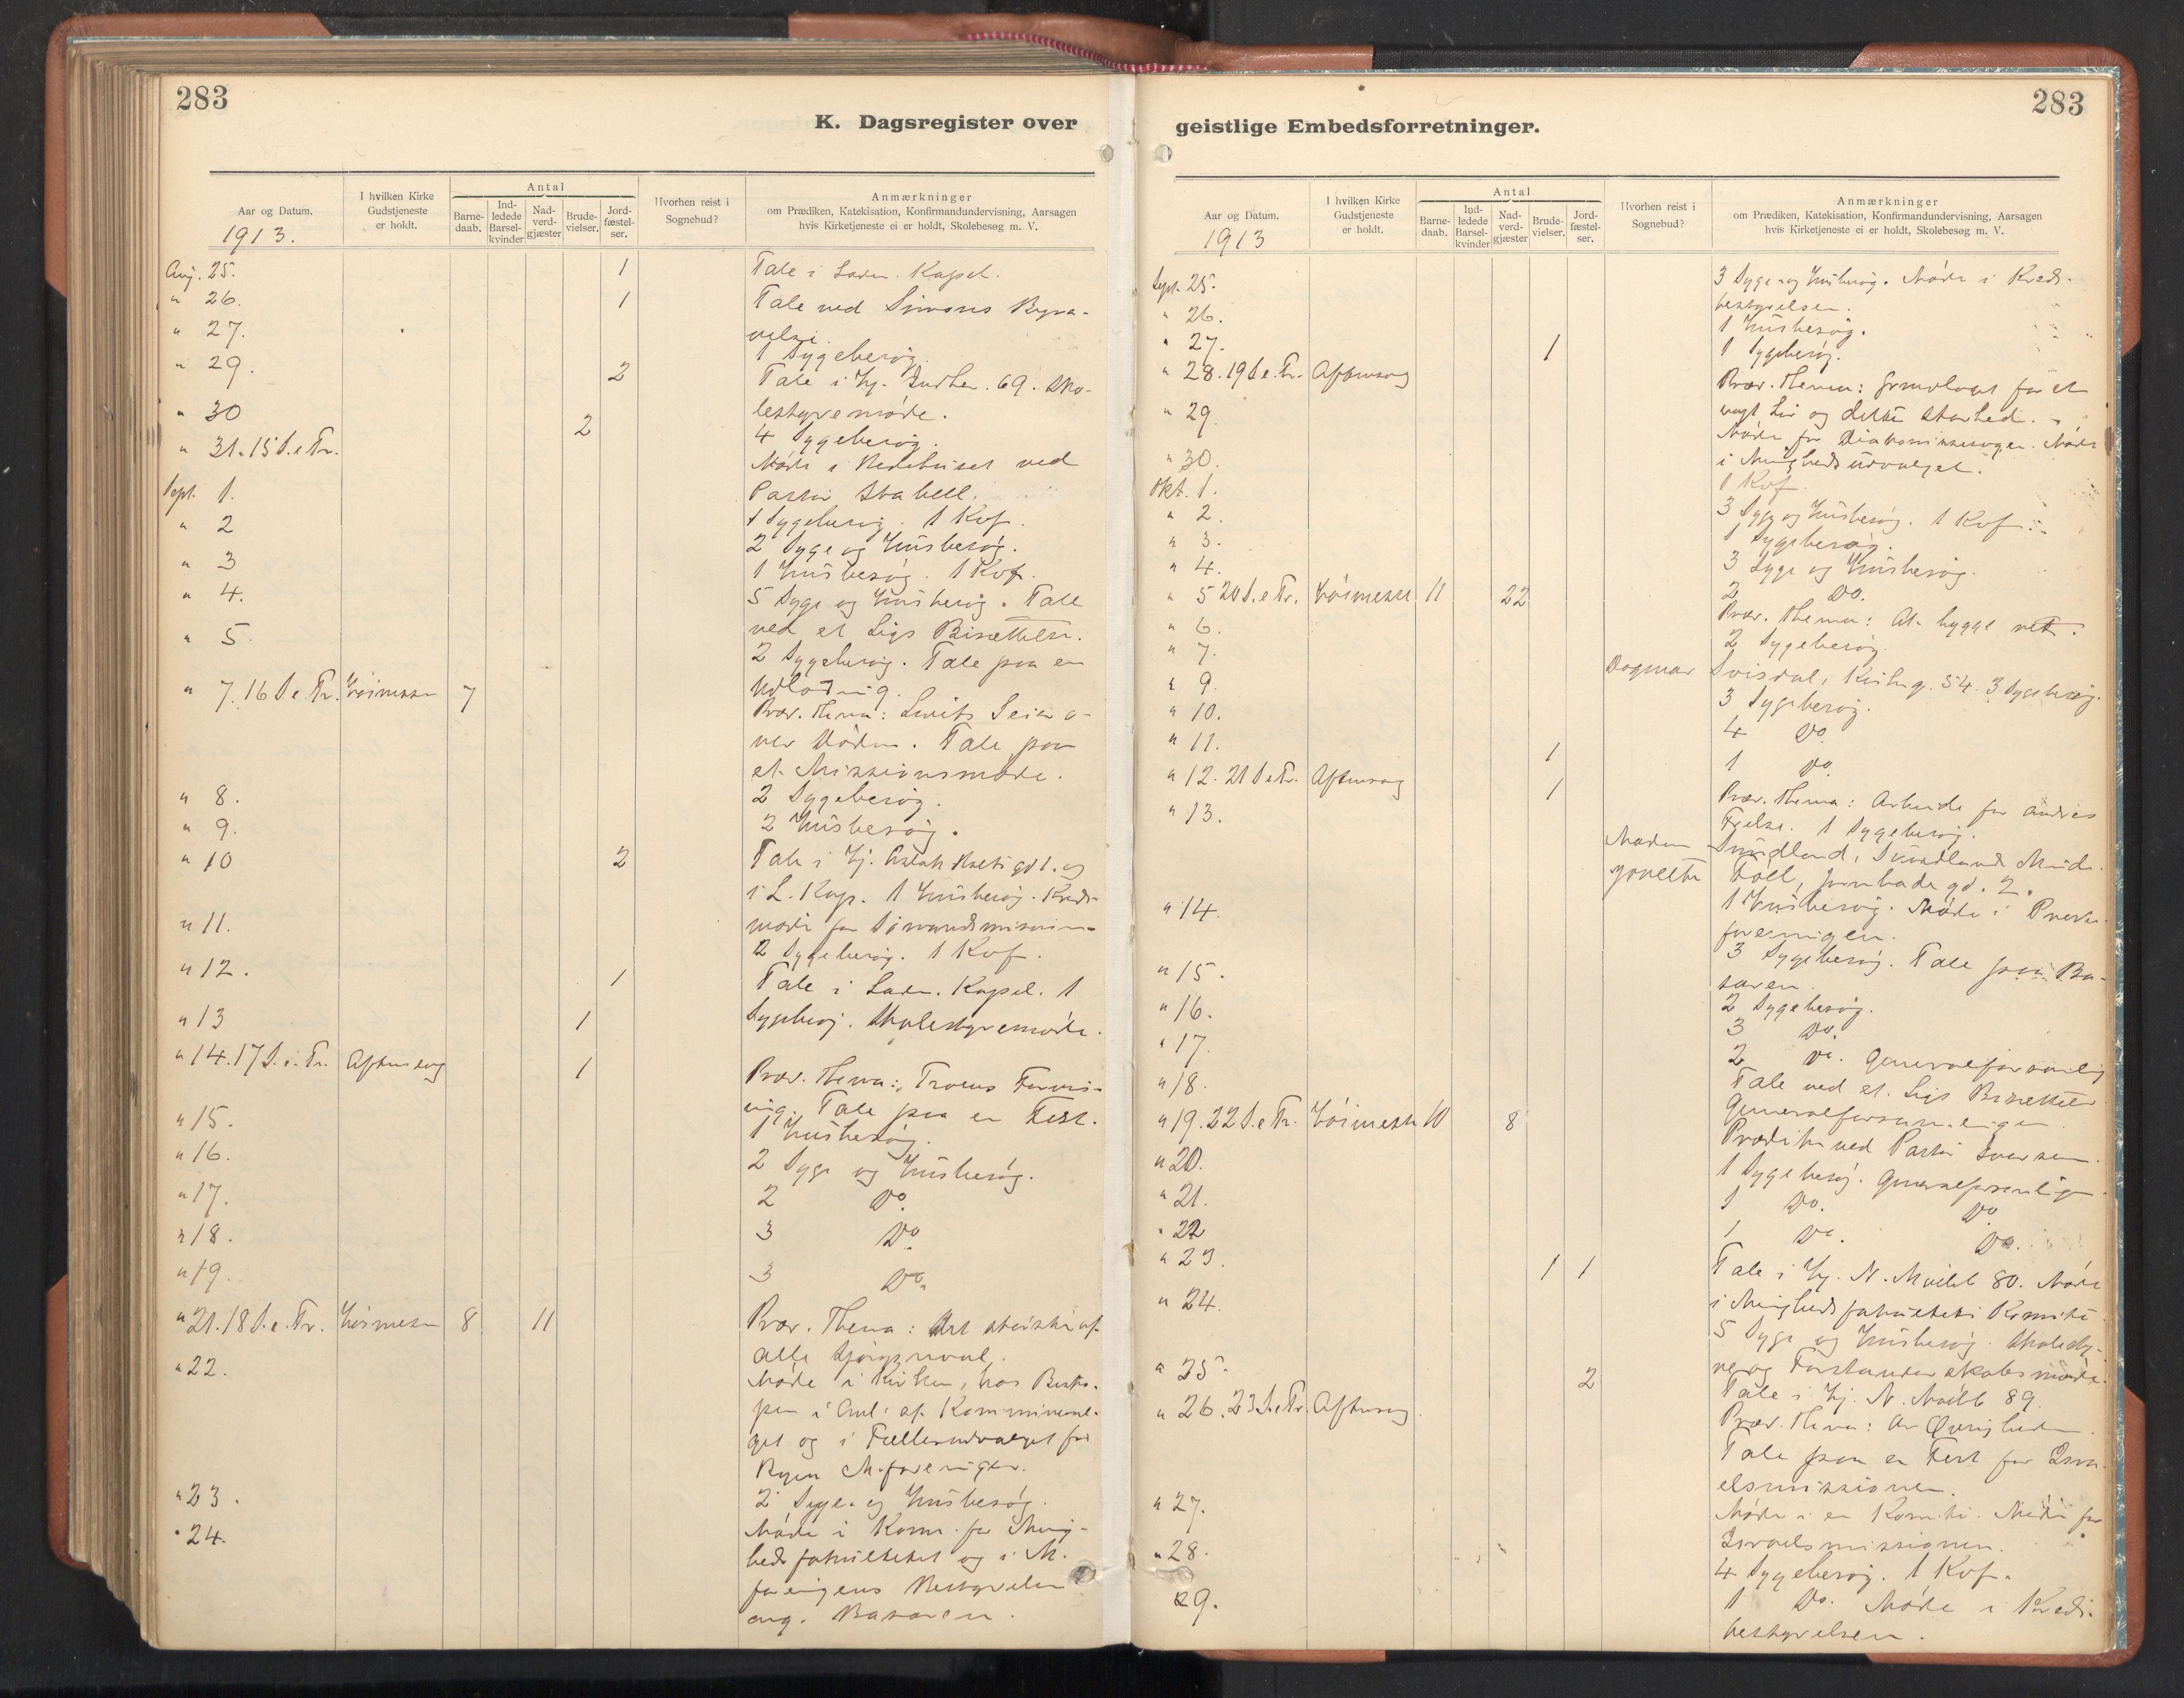 283
K. Dagsregister over
Aar og Datum.
1913.
I hvilken Kirke
Gudstjeneste
er holdt.
Antal
Barne-
daab.
Ind-
ledede
Barsel-
kvinder
Nad-
verd-
gjæster
Brude-
vielser.
Jord-
fæstel-
ser.
Hvorhen reist i
Sognebud?
Anmærkninger
om Prædiken, Katekisation, Konfirmandundervisning, Aarsagen
hvis Kirketjeneste ei er holdt, Skolebesøg m. V.
Aug. 25. 1 Tale i Kapel.
" 26. 1 Tale ved
" 27.
1 Sygebesøg.
" 29. 2 Tale i 69. Sko-
lestyremøde.
" 30 2 4 Sygebesøg.
" 31. 15 S. e. Tr. Møde i Bedehuset ved
Sept. 1. Pastor Stabell.
" 2 1 Sygebesøg. 1 Kof.
" 3 2 Syge og Husbesøg.
1 Husbesøg. 1 Kof.
" 4. 5 Syge og Husbesøg. Tale
" 5. ved et Ligs Bisættelse.
2 Sygebesøg. Tale paa en
Udlodning.
" 7. 16 S e Tr. Høimesse 7 Præd. Thema: Livets Seier o-
ver Døden. Tale paa
et Missionsmøde.
" 8. 2 Sygebesøg.
" 9. 2 Husbesøg.
" 10 2 Tale i Hj. gd 1. og
i L. Kap. 1 Husbesøg. Kreds-
" 11. møde for Sømandsmission
2 Sygebesøg. 1 Kof.
" 12. 1 Tale i Kapel. 1
" 13 1 Sygebesøg. Skolestyremøde.
" 14. 17 S. e. Tr. Aftensang 1 Præd. Thema: Troens
Tale paa en Fest.
" 15. 1 Husbesøg.
" 16. 2 Syge og Husbesøg.
" 17. 2 Do.
" 18. 3 Do.
" 19. 3 Do.
" 21. 18 S. e. Tr. Høimesse 8 11 Præd. Thema: Det største af
alle Spørgsmaal.
" 22. Møde i Kirken, hos Bisko-
pen i Anl. af
get og i Fællesudvalget for
Byen M.foreninger.
" 23. 2 Syge og Husbesøg.
" 24. Møde i Kom. for Menig-
hedsfakultetet og i M.
foreningens Bestyrelse
ang. Basaren.
283
geistlige Embedsforretninger.
Aar og Datum.
1913
I hvilken Kirke
Gudstjeneste
er holdt.
Antal
Barne-
daab.
Ind-
ledede
Barsel-
kvinder
Nad-
verd-
gjæster
Brude-
vielser.
Jord-
fæstel-
ser.
Hvorhen reist i
Sognebud?
Anmærkninger
om Prædiken, Katekisation, Konfirmandundervisning, Aarsagen
hvis Kirketjeneste ei er holdt, Skolebesøg m. V.
Sept. 25. 3 Syge- og Husbesøg. Møde i Kreds-
bestyrelsen.
" 26. 1 Husbesøg.
" 27. 1 1 Sygebesøg.
" 28. 19 S e. Tr. Aftensang Præd. Thema: Grundlaget for et
Liv og dettes
" 29. Møde for Møde
i Menighedsudvalget.
" 30. 1 Kof.
Okt. 1. 3 Syge og Husbesøg. 1 Kof.
" 2. 1 Sygebesøg.
" 3. 3 Syge og Husbesøg.
" 4. 2 Do.
" 5 20 S. e Tr. Høimesse 11 22 Præd. Thema: At bygge ret.
" 6. 2 Sygebesøg.
" 7. Dagmar 54. 3 Sygebesøg.
" 9. 3 Sygebesøg.
" 10. 4 Do.
" 11. 1 1 Do.
" 12. 21 S e Tr. Aftensang 1 Præd. Thema: Arbeide for andres
Frelse. 1 Sygebesøg.
" 13. Madam
gd. 2.
" 14. 1 Husbesøg. Møde i Præste-
foreningen.
" 15. 3 Sygebesøg. Tale paa Ba-
saren.
" 16. 2 Sygebesøg.
" 17. 3 Do.
2 Do. Generalforsamling
" 18. Tale ved et Ligs Bisættelse
Generalforsamlingen.
" 19. 22 S. e Tr. Høimesse 10 8 Prædiken ved Pastor Iversen.
" 20. 1 Sygebesøg. Generalforsamlingen.
" 21. 1 Do. Do.
" 22 1 Do. Do.
" 23. 1 1 Tale i Hj. N. 80. Møde
i Menighedsfakultets Komite.
" 24. 5 Syge og Husbesøg. Skolesty-
re og Forstanderskabsmøde.
" 25. 2 Tale i Hj. N. 89.
" 26. 23 S. e Tr. Aftensang Præd. Thema:
Tale paa en Fest for Isra-
elsmissionen.
" 27. Møde i en Komite. Møde for
Israelsmissionen.
" 28. 4 Sygebesøg. 1 Kof.
29. 1 Do. Møde i Kreds-
bestyrelsen.